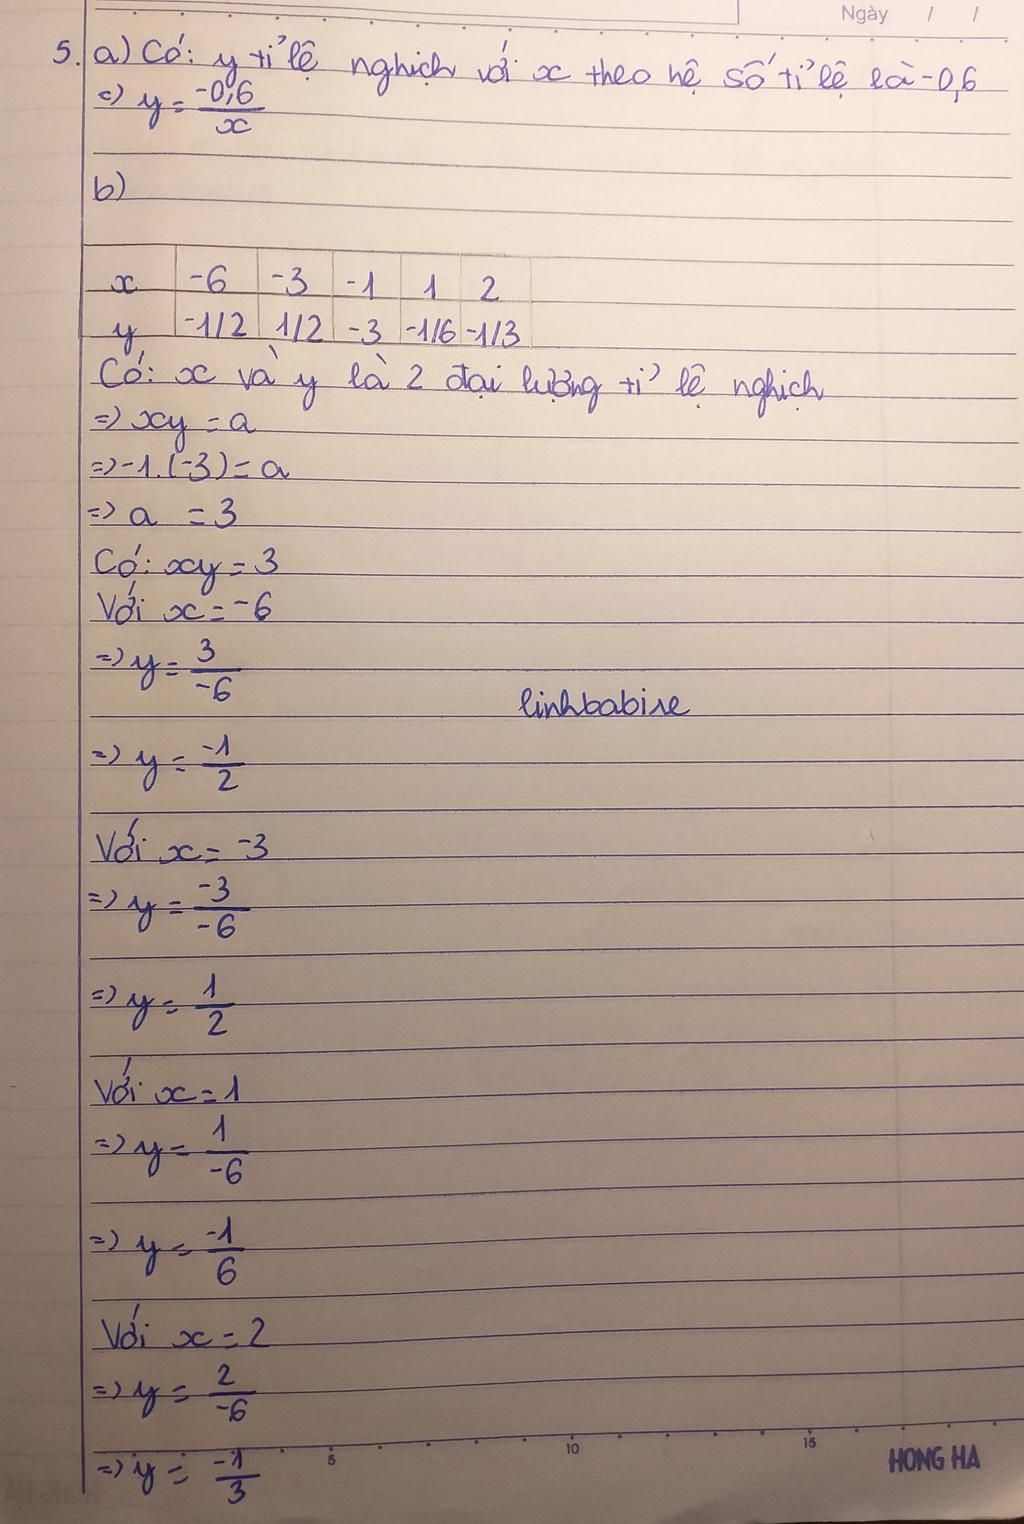 Ngày / /
5. a) Có: y tỉ lệ nghịch với x theo hệ số tỉ lệ là -0,6
=> y = -0,6/x
b)
x -6 -3 -1 1 2
y -1/2 1/2 -3 -1/6 -1/3
Có: x và y là 2 đại lượng tỉ lệ nghịch
=> xy = a
=> -1.(-3) = a
=> a = 3
Có: xy = 3
Với x = -6
=> y = 3/-6
linhbabire
=> y = -1/2
Với x = -3
=> y = -3/-6
=> y = 1/2
Với x = 1
=> y = 1/-6
=> y = -1/6
Với x = 2
=> y = 2/-6
=> y = -1/3
5 10 15 HONG HA